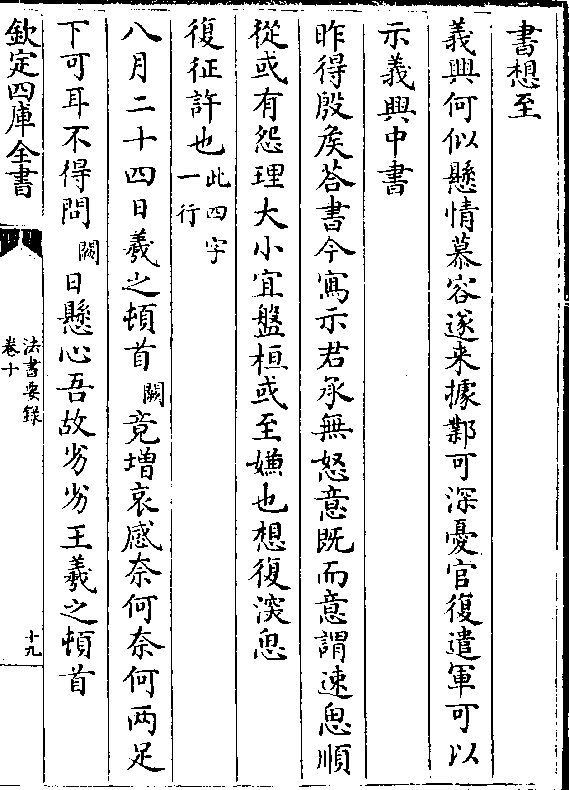 書想至
義興何似懸情慕容遂来據鄴可深憂官復遣軍可以
示義興中書
昨得殷矦荅書今寫示君承無怒意既而意謂速思順
從或有怨理大小宜盤桓或至嫌也想復深思
復征許也此四字一行
八月二十四日羲之頓首闕竟增哀感奈何奈何两足
下可耳不得問闕日懸心吾故劣劣王羲之頓首
欽定四庫全書
法書要録
卷十
十九